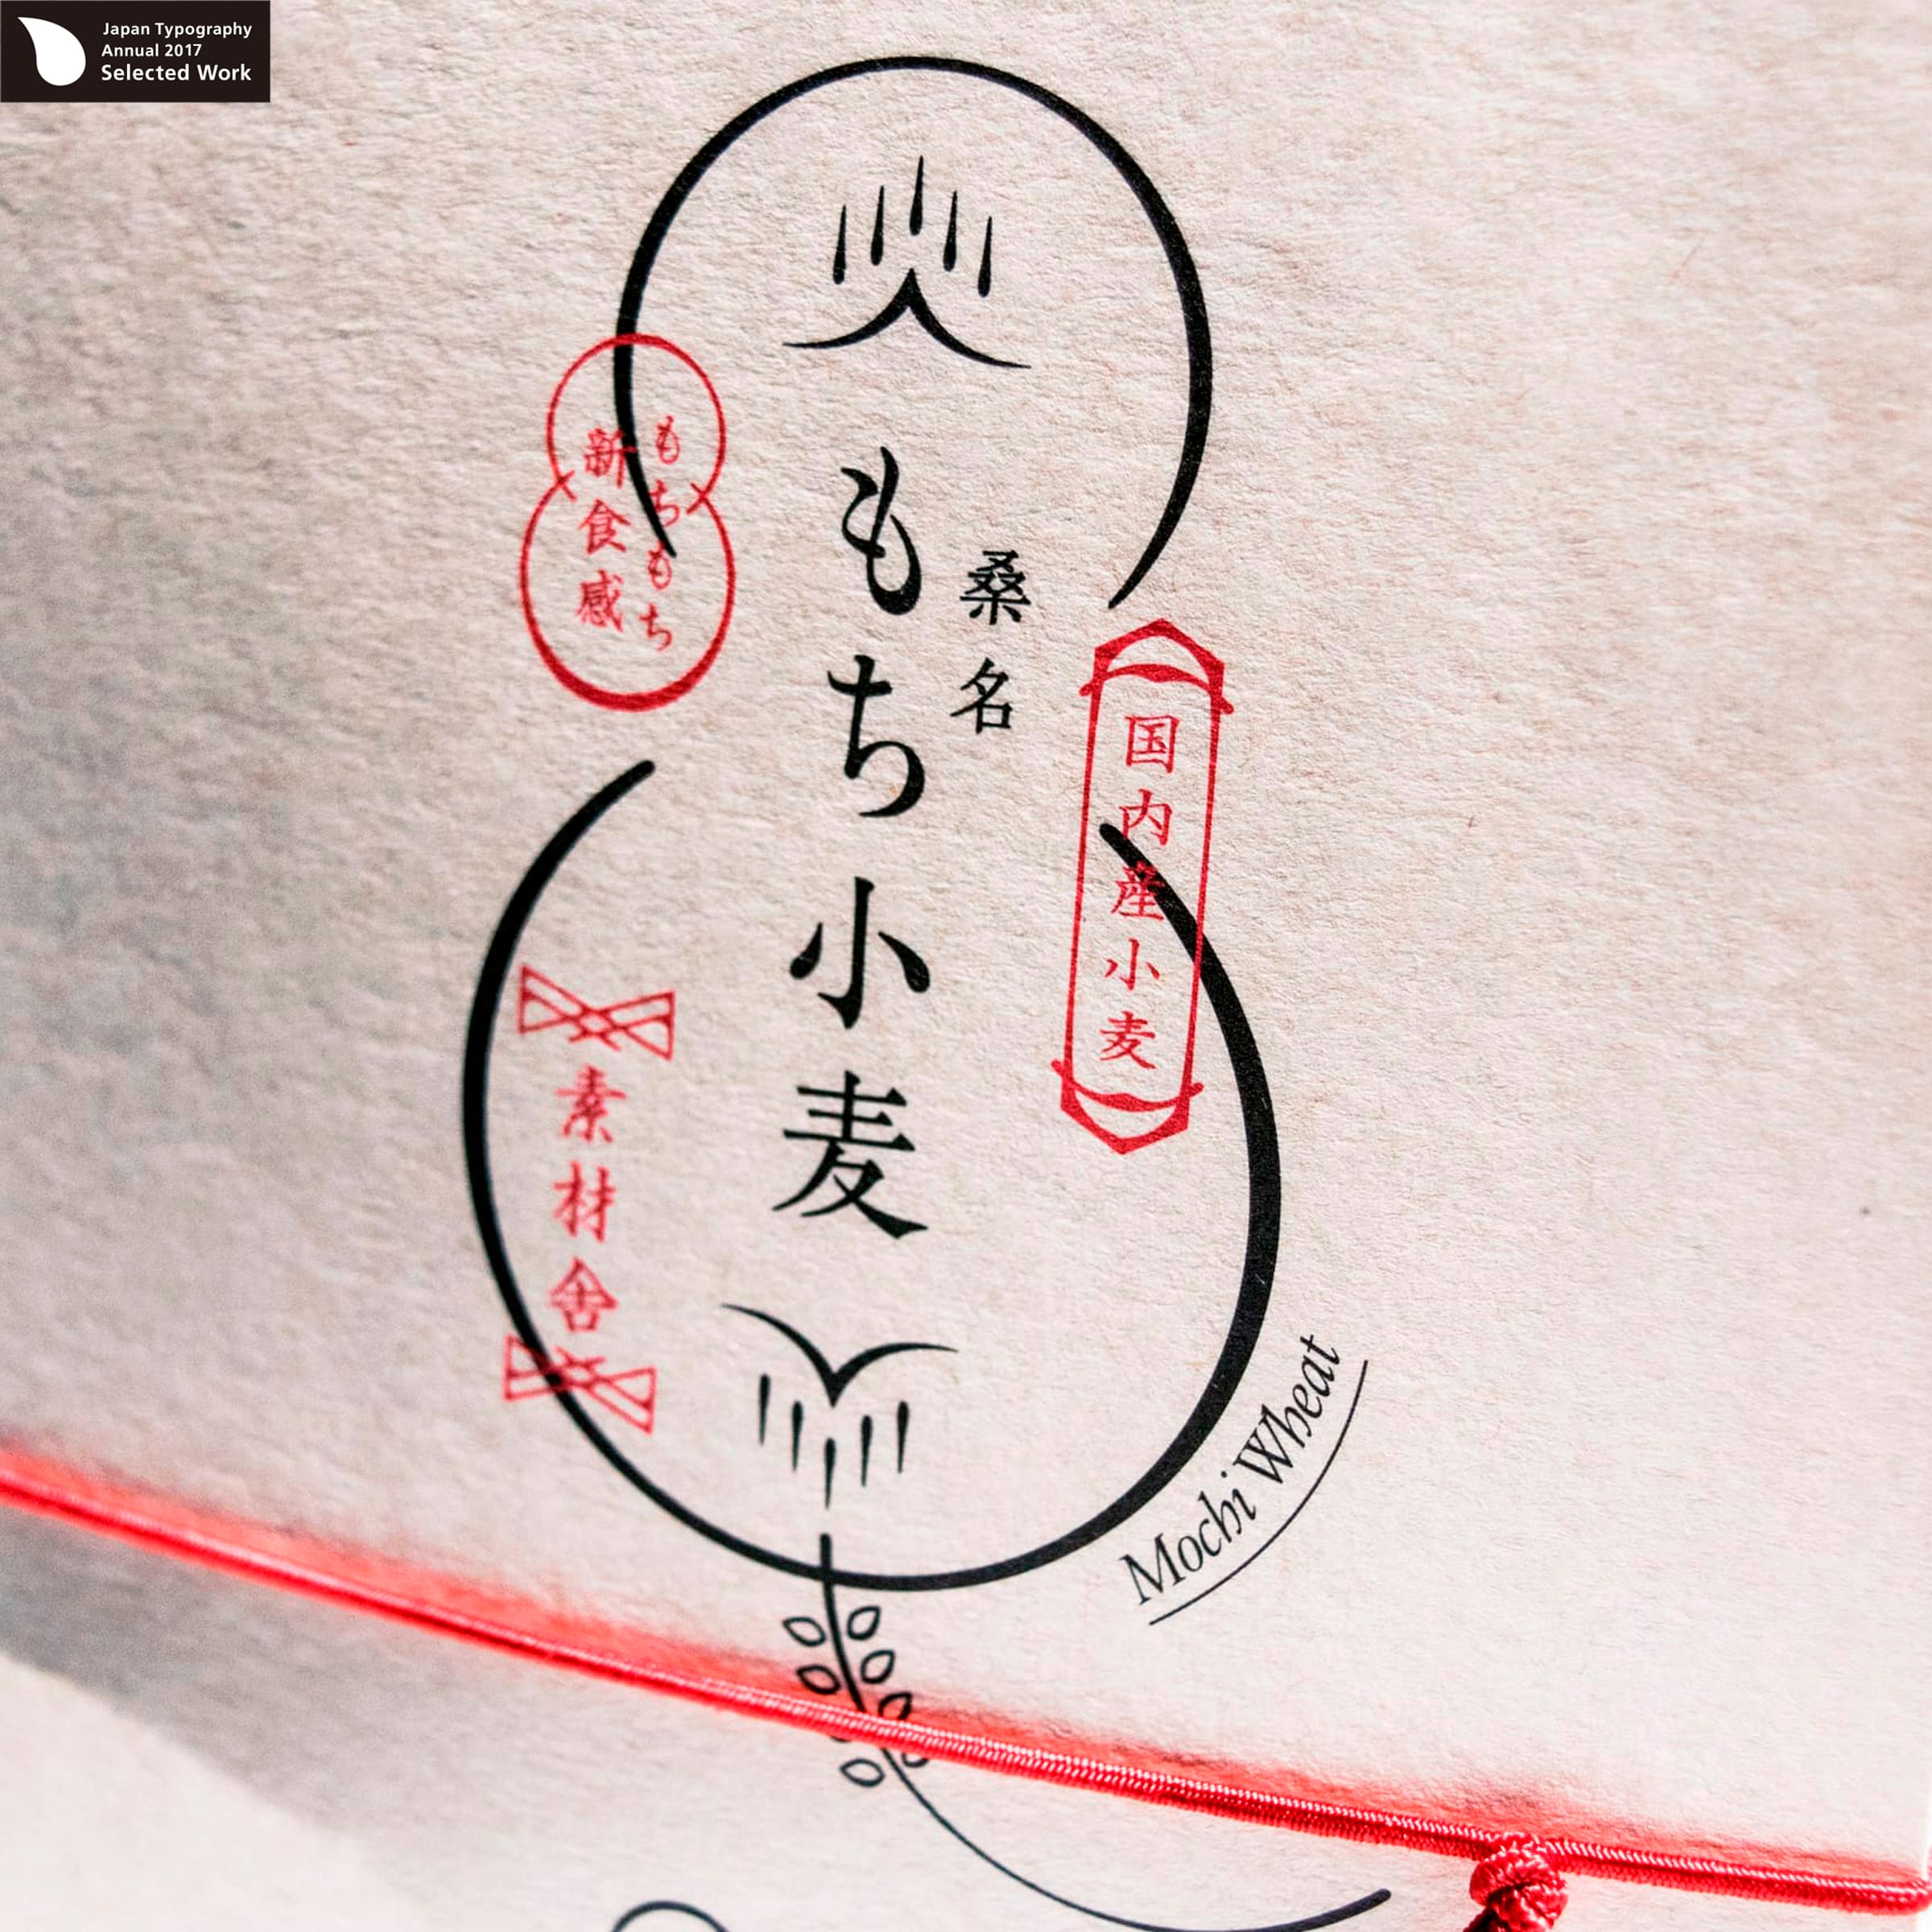 Japan Typography
Annual 2017
Selected Work
桑名
もち小麦
もちもち
新食感
国内産小麦
素材舎
Mochi Wheat